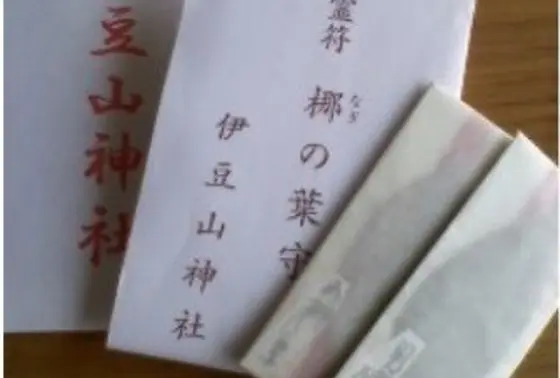 豆山神社
霊符 梛の葉守
なぎ
伊豆山神社